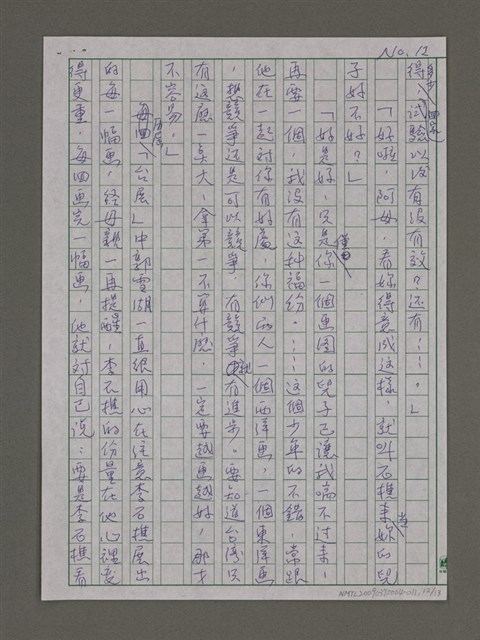 No. 12
得，試驗以沒有沒有效？还有⋯⋯。」
「好啦，阿母，看妳得意成这樣，就叫石樵来當妳的兒
子好不好？」
「好是好，只是僅由你一個画图的兒子已讓我喘不过来，
再要一個，我没有这种福份。⋯⋯这個少年的不錯，常跟
他在一起对你有好處，你们两人一個西洋画，一個東洋画
，想競爭还是可以競爭，有競爭就有進步。要知道台湾只
有这麼一點大，拿第一不算什麼，一定要越画越好，那才
不容易。」
每回「台展」中郭雪湖一直很用心在注意李石樵展出
的每一幅画，经母親一再提醒，李石樵的份量在他心裡变
得更重，每回画完一幅画，他就对自己说：要是李石樵看